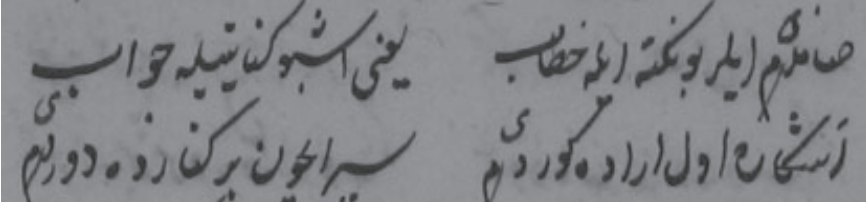 صاندیم ایلر بو نکته ایله خطاب یعنی اشبو کنایتیله جواب
اول اراده کوردیم سیر ایچون بر کنارده دوردیم